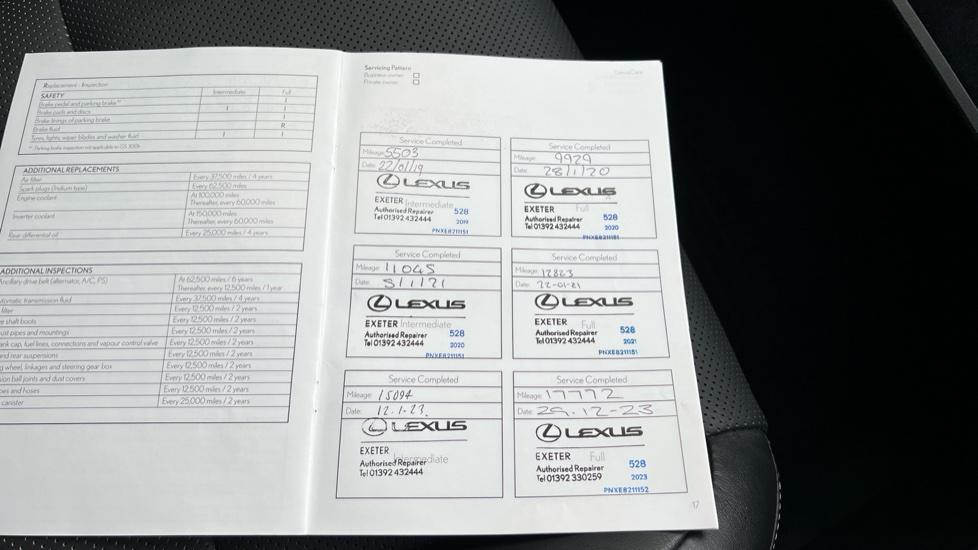 Replacement - Inspection
Intermediate Full
SAFETY
Brake pedal and parking brake** I
Brake pads and discs I I
Brake linings of parking brake I
Brake fluid R
Tyres, lights, wiper blades and washer fluid I I
ADDITIONAL REPLACEMENTS
Air filter Every 37,500 miles / 4 years
Spark plugs (Iridium type) Every 62,500 miles
Engine coolant At 100,000 miles
Thereafter, every 60,000 miles
Inverter coolant At 150,000 miles
Thereafter, every 60,000 miles
Rear differential oil Every 25,000 miles / 4 years
ADDITIONAL INSPECTIONS
Ancillary drive belt (alternator, A/C, PS) At 62,500 miles / 6 years
Thereafter, every 12,500 miles / 1 year
tomatic transmission fluid Every 37,500 miles / 4 years
filter Every 12,500 miles / 2 years
e shaft boots Every 12,500 miles / 2 years
ust pipes and mountings Every 12,500 miles / 2 years
ank cap, fuel lines, connections and vapour control valve Every 12,500 miles / 2 years
and rear suspensions Every 12,500 miles / 2 years
g wheel, linkages and steering gear box Every 12,500 miles / 2 years
ion ball joints and dust covers Every 12,500 miles / 2 years
pes and hoses Every 12,500 miles / 2 years
canister Every 25,000 miles / 2 years
Servicing Pattern
Business owner
Private owner
Service Completed
Mileage: 5503
Date: 22/01/19
LEXUS
EXETER Intermediate
Authorised Repairer 528
Tel 01392 432444 2019
PNXE8211151
Service Completed
Mileage: 9929
Date: 28/1/20
LEXUS
EXETER Full
Authorised Repairer 528
Tel 01392 432444 2020
PNXE8211151
Service Completed
Mileage: 11045
Date:
LEXUS
EXETER Intermediate
Authorised Repairer 528
Tel 01392 432444 2020
PNXE8211151
Service Completed
Mileage: 12823
Date: 22-01-21
LEXUS
EXETER Full
Authorised Repairer 528
Tel 01392 432444 2021
PNXE8211151
Service Completed
Mileage: 15094
Date: 12.1.23.
LEXUS
EXETER
Authorised Repairer Intermediate
Tel 01392 432444
Service Completed
Mileage: 17772
Date: 29.12-23
LEXUS
EXETER Full
Authorised Repairer 528
Tel 01392 330259 2023
PNXE8211152
17